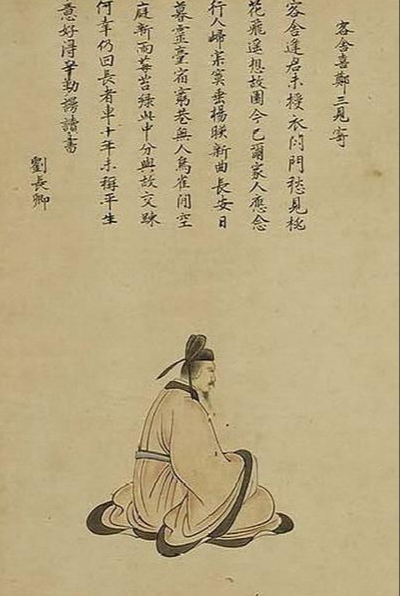 客舍喜鄭三見寄
客舍逢君未授衣閉門愁見桃
花飛遥想故園今已爾家人應念
行人歸寂寞垂楊映新曲長安日
暮靈臺宿窮巷無人鳥雀閒空
庭新雨莓苔緑此中分與故交踈
何幸仍回長者車十年未稱平生
意好淂辛勤謾讀書
劉長卿